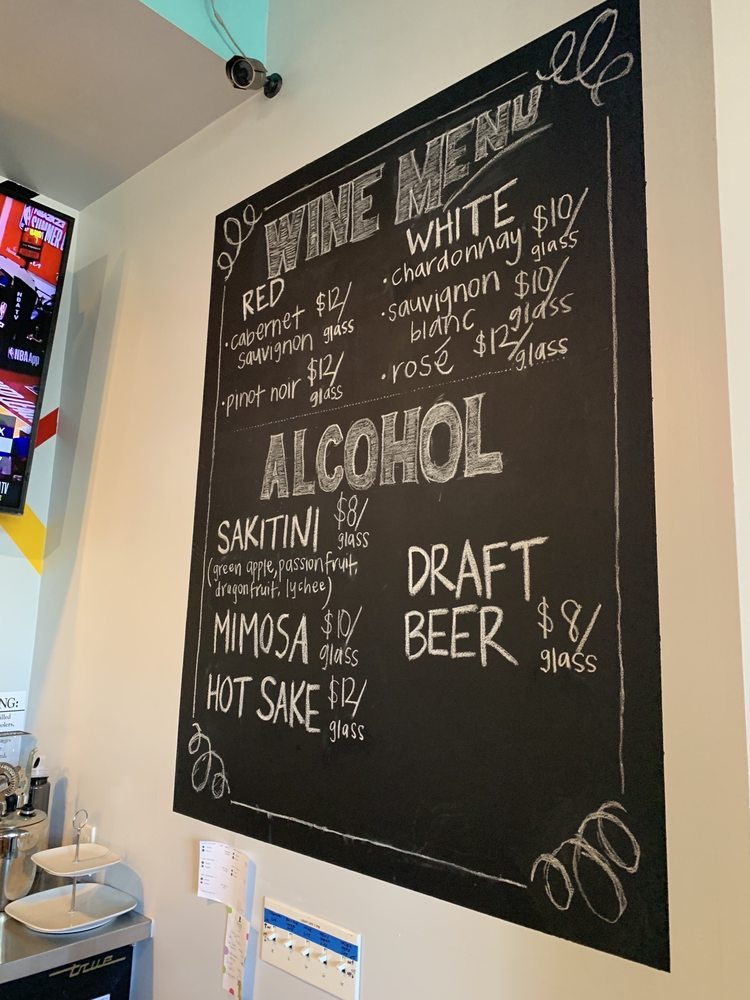 WINE MENU
RED
• cabernet sauvignon $12/ glass
• pinot noir $12/ glass
WHITE
• chardonnay $10/ glass
• sauvignon blanc $10/ glass
• rosé $12/ glass
ALCOHOL
SAKITINI $8/ glass
(green apple, passionfruit,
dragonfruit, lychee)
MIMOSA $10/ glass
HOT SAKE $12/ glass
DRAFT
BEER $8/ glass
NBA TV
NBA App
NG:
true